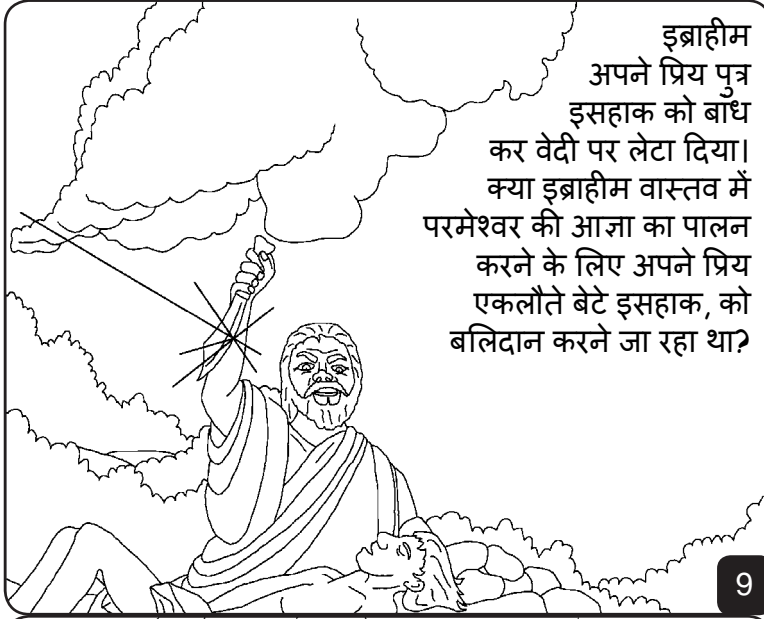 इब्राहीम
अपने प्रिय पुत्र
इसहाक को बांध
कर वेदी पर लेटा दिया।
क्या इब्राहीम वास्तव में
परमेश्वर की आज्ञा का पालन
करने के लिए अपने प्रिय
एकलौते बेटे इसहाक, को
बलिदान करने जा रहा था?
9